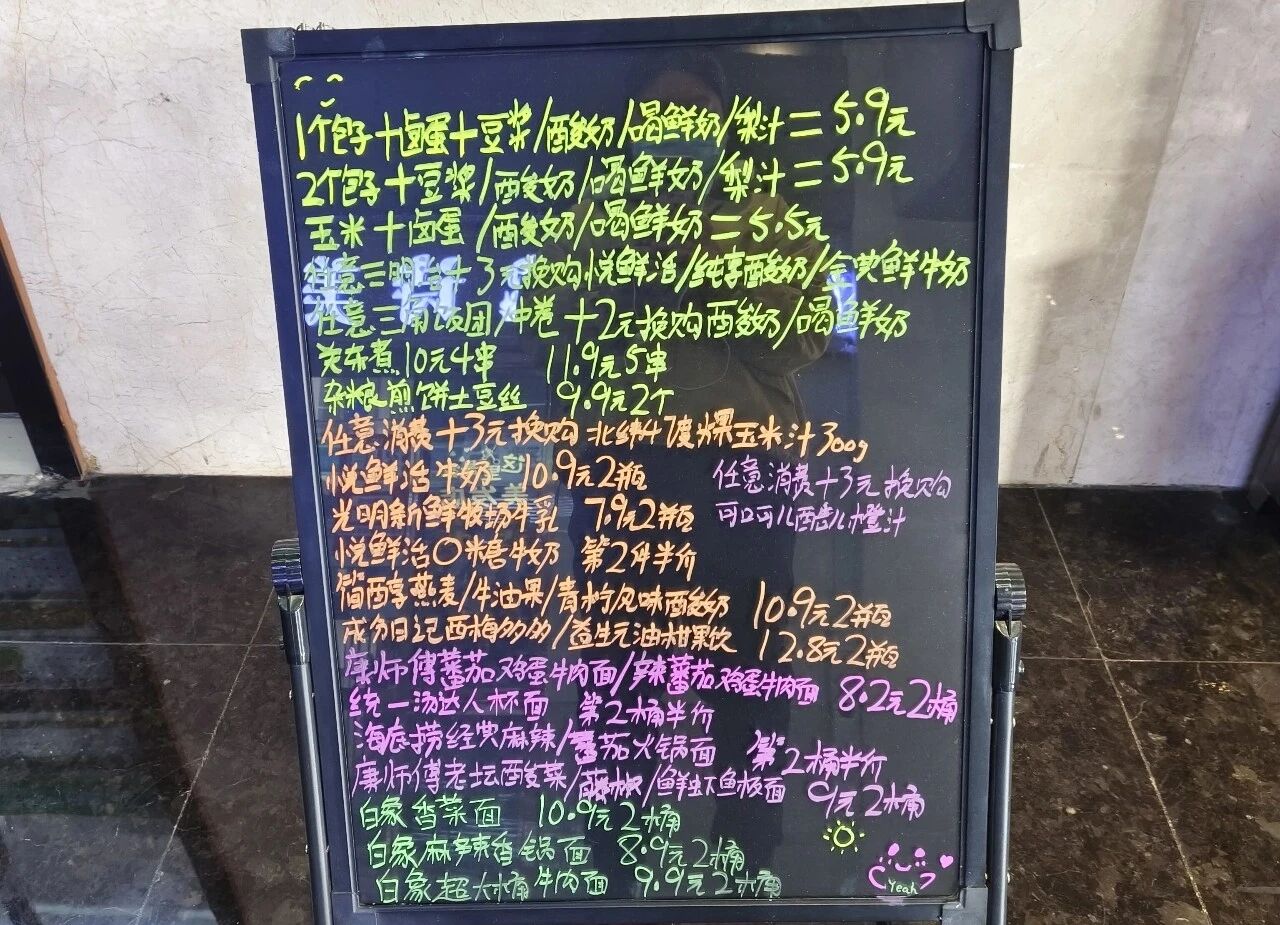 1个包子+卤蛋+豆浆/酸奶/喝鲜奶/梨汁=5.9元
2个包子+豆浆/酸奶/喝鲜奶/梨汁=5.9元
玉米+卤蛋/酸奶/喝鲜奶=5.5元
任意三明治+3元换购悦鲜活/纯享酸奶/金典鲜牛奶
任意三角饭团/中卷+2元换购酸奶/喝鲜奶
关东煮10元4串 11.9元5串
杂粮煎饼土豆丝 9.9元2个
任意消费+3元换购北纬47度爆玉米汁300g
悦鲜活牛奶 10.9元2瓶
光明新鲜牧场牛乳 7.9元2瓶
任意消费+3元换购
可口可儿酷儿橙汁
悦鲜活0糖牛奶 第2件半价
简醇燕麦/牛油果/青柠风味酸奶 10.9元2瓶
成分日记西梅多多/益生元油柑果饮 12.8元2瓶
康师傅蕃茄鸡蛋牛肉面/辣蕃茄鸡蛋牛肉面 8.2元2桶
统一汤达人杯面 第2桶半价
海底捞经典麻辣/蕃茄火锅面 第2桶半价
康师傅老坛酸菜/藤椒/鲜虾鱼板面 9元2桶
白象香菜面 10.9元2桶
白象麻辣香锅面 8.9元2桶
白象超大桶牛肉面 9.9元2桶
Yeah